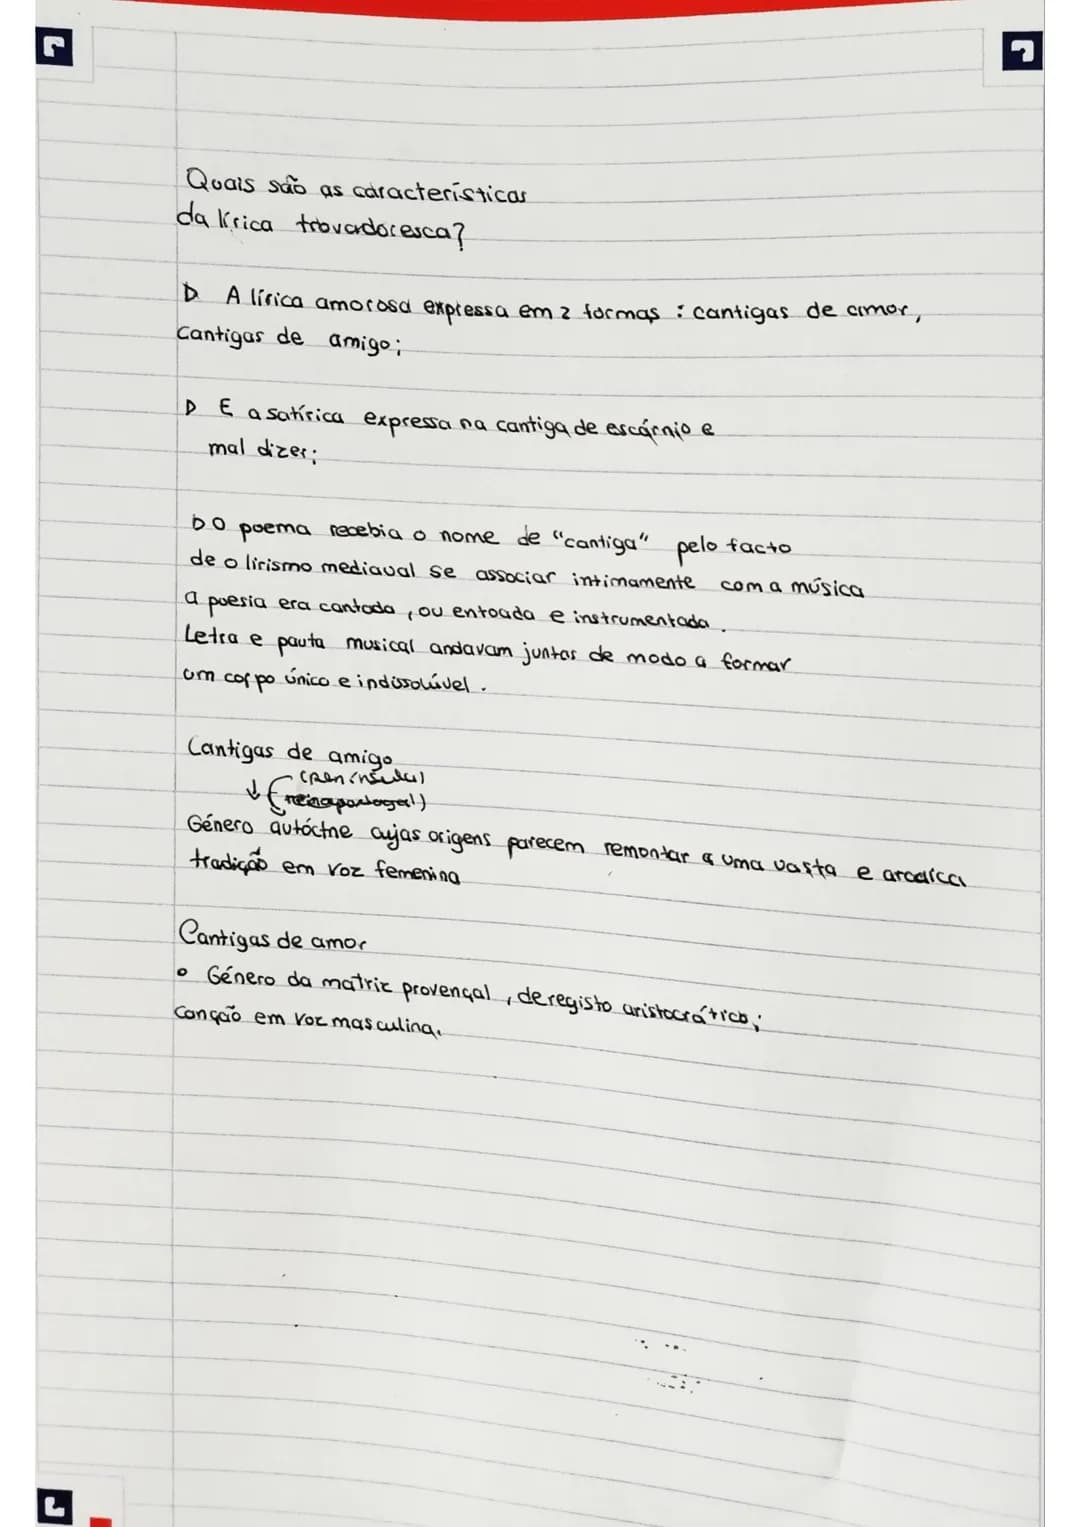 Quais são as características
da lírica trovadoresca?
A lírica amorosa expressa em 2 formas : cantigas de amor,
Cantigas de amigo;
E a satírica expressa na cantiga de escárnio e
mal dizer;
O poema recebia o nome de "cantiga" pelo facto
de o lirismo mediaval se associar intimamente com a música
a poesia era cantada , ou entoada e instrumentada .
Letra e pauta musical andavam juntas de modo a formar
um corpo único e indissolúvel .
Cantigas de amigo
(península)
Género autóctne cujas origens parecem remontar a uma vasta e arcaíca
tradição em voz femenina
Cantigas de amor
• Género da matriz provençal , de registo aristocrático;
Canção em voz masculina.